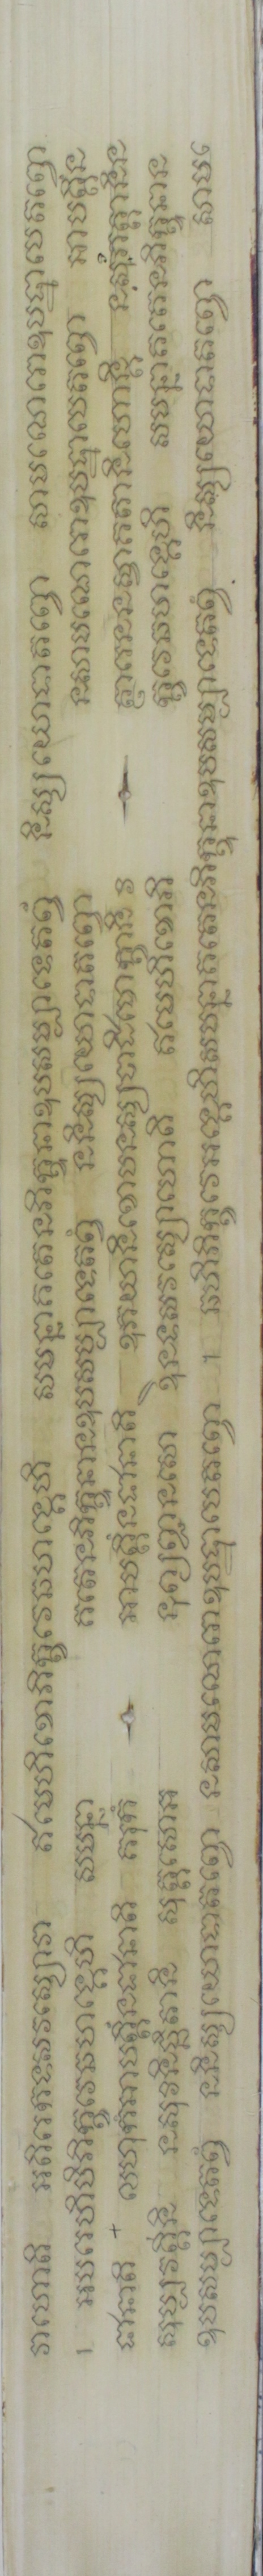 វាហោតិ អតិរេកទសវស្សោវា ឥមេហិខោភិក្ខវេឆហង្គេហិ សមន្នាគតេនភិក្ខុនាឧបសម្បាទេតព្វំ និស្សយោទាតព្វោ សាមណេរោឧបដ្ឋាបេតព្វោ
។ អបរេហិបិភិក្ខវេឆហង្គេហិ សមន្នា គតេនភិក្ខុនានឧបសម្បាទេតព្វំ ននិស្សយោទាតព្វោ នសាមណេរោឧបដ្ឋាបេតព្វោ អាបត្តឹន
ជានាតិ + លហុកំអាបត្តឹនជានាតិ គរុកំ អាបត្តឹនជានាតិ ឧភយានិខោបនស្សបាតិមោក្ខានិវិ ត្ថារេននស្វាគតានិហោន្តិ នសុវិភត្តានិន
សុប្បវត្តីនិ នសុវិនិច្ឆិតានិ សុត្តសោអ នុព្យញ្ជនសោ ឩនទសវស្សោហោតិ ឥមេហិខោភិ ក្ខវេឆហង្គេហិ សមន្នាគតេនភិក្ខុនាន
ឧបសម្បាទេតព្វំ ននិស្សយោទាតព្វោ នសាមណេរោឧបដ្ឋាបេតព្វោ ។ ឆហិភិក្ខវេអង្គេហិសមន្នាគតេនភិក្ខុនាឧបសម្បាទេតព្វំ និស្សយោទាតព្វោ សាមេ